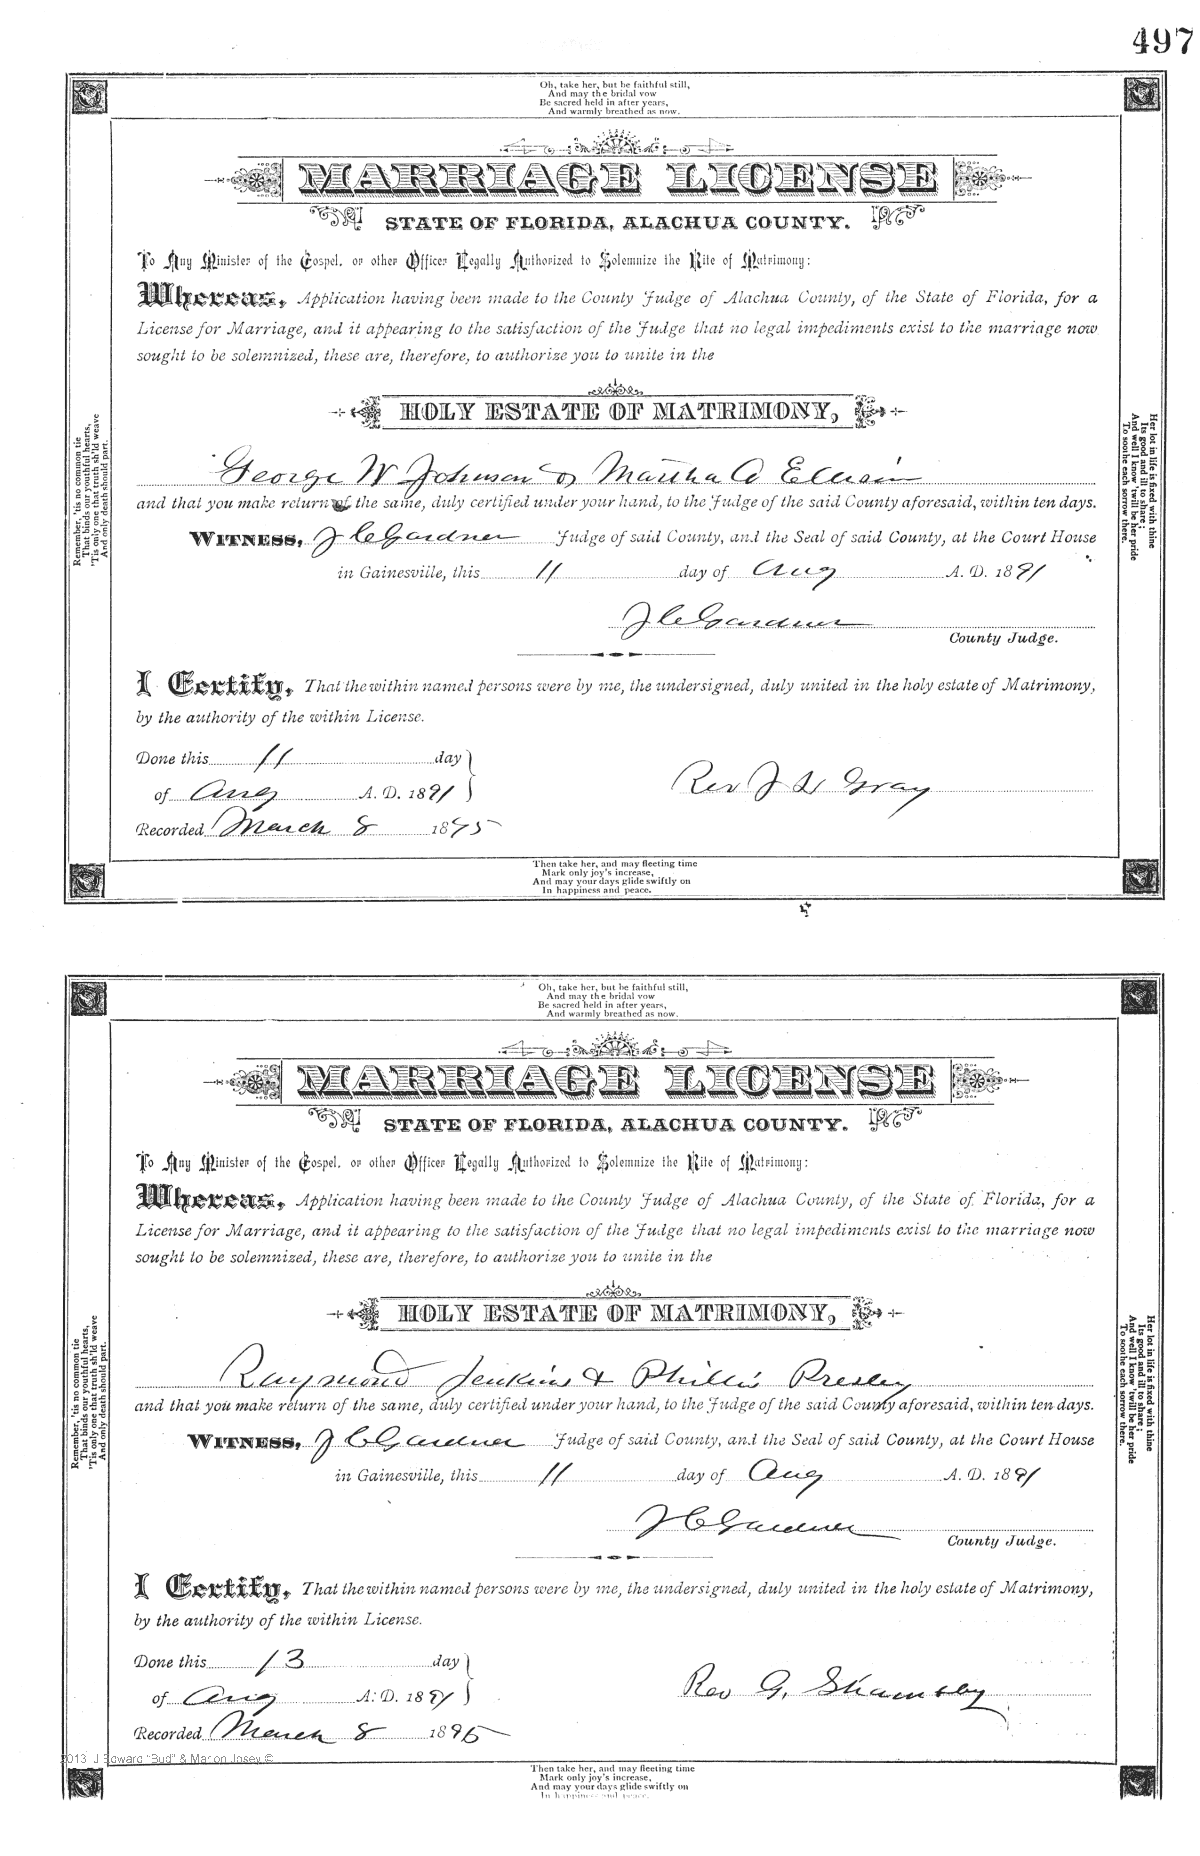 497
Oh, take her, but be faithful still,
And may the bridal vow
Be sacred held in after years,
And warmly breathed as now.
MARRIAGE LICENSE
STATE OF FLORIDA, ALACHUA COUNTY.
To Any Minister of the Gospel, or other Officer Legally Authorized to Solemnize the Rite of Matrimony:
Whereas, Application having been made to the County Judge of Alachua County, of the State of Florida, for a
License for Marriage, and it appearing to the satisfaction of the Judge that no legal impediments exist to the marriage now
sought to be solemnized, these are, therefore, to authorize you to unite in the
HOLY ESTATE OF MATRIMONY,
George W Johnson & Martha A
and that you make return of the same, duly certified under your hand, to the Judge of the said County aforesaid, within ten days.
WITNESS, J C Gardner Judge of said County, and the Seal of said County, at the Court House
in Gainesville, this 11 day of Aug A. D. 1891
J C Gardner
County Judge.
I Certify, That the within named persons were by me, the undersigned, duly united in the holy estate of Matrimony,
by the authority of the within License.
Done this 11 day
of Aug A. D. 1891
Rev J Gray
Recorded March 8 1895
Then take her, and may fleeting time
Mark only joy's increase,
And may your days glide swiftly on
In happiness and peace.
Remember, 'tis no common tie
That binds our youthful hearts,
'Tis only one that truth sh'ld weave
And only death should part.
Her lot in life is fixed with thine
Its good and ill to share;
And well I know 'twill be her pride
To soothe each sorrow there.
Oh, take her, but be faithful still,
And may the bridal vow
Be sacred held in after years,
And warmly breathed as now.
MARRIAGE LICENSE
STATE OF FLORIDA, ALACHUA COUNTY.
To Any Minister of the Gospel, or other Officer Legally Authorized to Solemnize the Rite of Matrimony:
Whereas, Application having been made to the County Judge of Alachua County, of the State of Florida, for a
License for Marriage, and it appearing to the satisfaction of the Judge that no legal impediments exist to the marriage now
sought to be solemnized, these are, therefore, to authorize you to unite in the
HOLY ESTATE OF MATRIMONY,
Raymond Jenkins & Phillis Presley
and that you make return of the same, duly certified under your hand, to the Judge of the said County aforesaid, within ten days.
WITNESS, J C Gardner Judge of said County, and the Seal of said County, at the Court House
in Gainesville, this 11 day of Aug A. D. 1891
J C Gardner
County Judge.
I Certify, That the within named persons were by me, the undersigned, duly united in the holy estate of Matrimony,
by the authority of the within License.
Done this 13 day
of Aug A. D. 1891
Rev G.
Recorded March 8 1895
2013 J Edward "Bud" & Marion Josey ©
Then take her, and may fleeting time
Mark only joy's increase,
And may your days glide swiftly on
In happiness and peace.
Remember, 'tis no common tie
That binds our youthful hearts,
'Tis only one that truth sh'ld weave
And only death should part.
Her lot in life is fixed with thine
Its good and ill to share;
And well I know 'twill be her pride
To soothe each sorrow there.